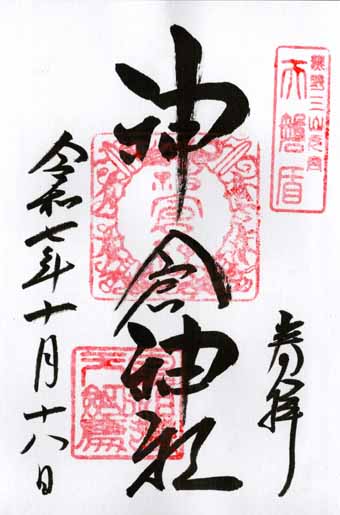 奉拝
熊野三山元宮
天磐盾
神倉神社
令和七年十月十八日